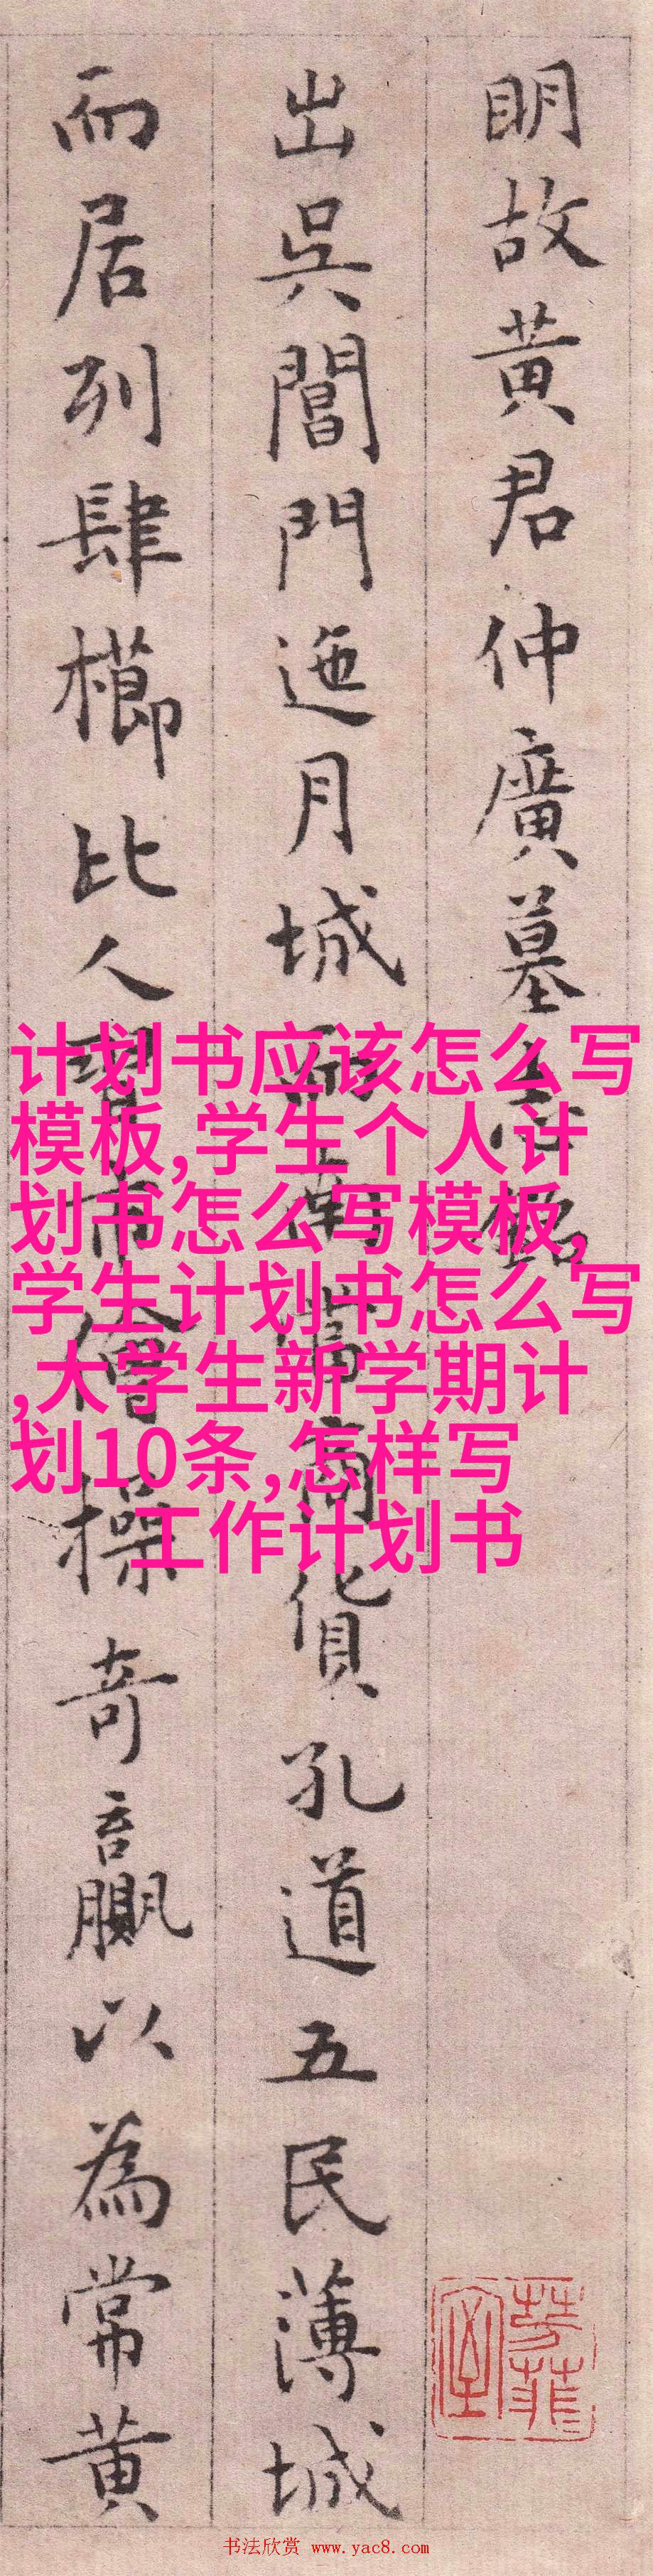 明故黄君仲廣墓志銘
出吳閶門迤月城而南當商貨孔道五民薄城
而居列肆櫛比人習市儈操奇贏以為常黄
计划书应该怎么写
模板,学生个人计
划书怎么写模板,
学生计划书怎么写
,大学生新学期计
划10条,怎样写
工作计划书
书法欣赏 www.yac8.com